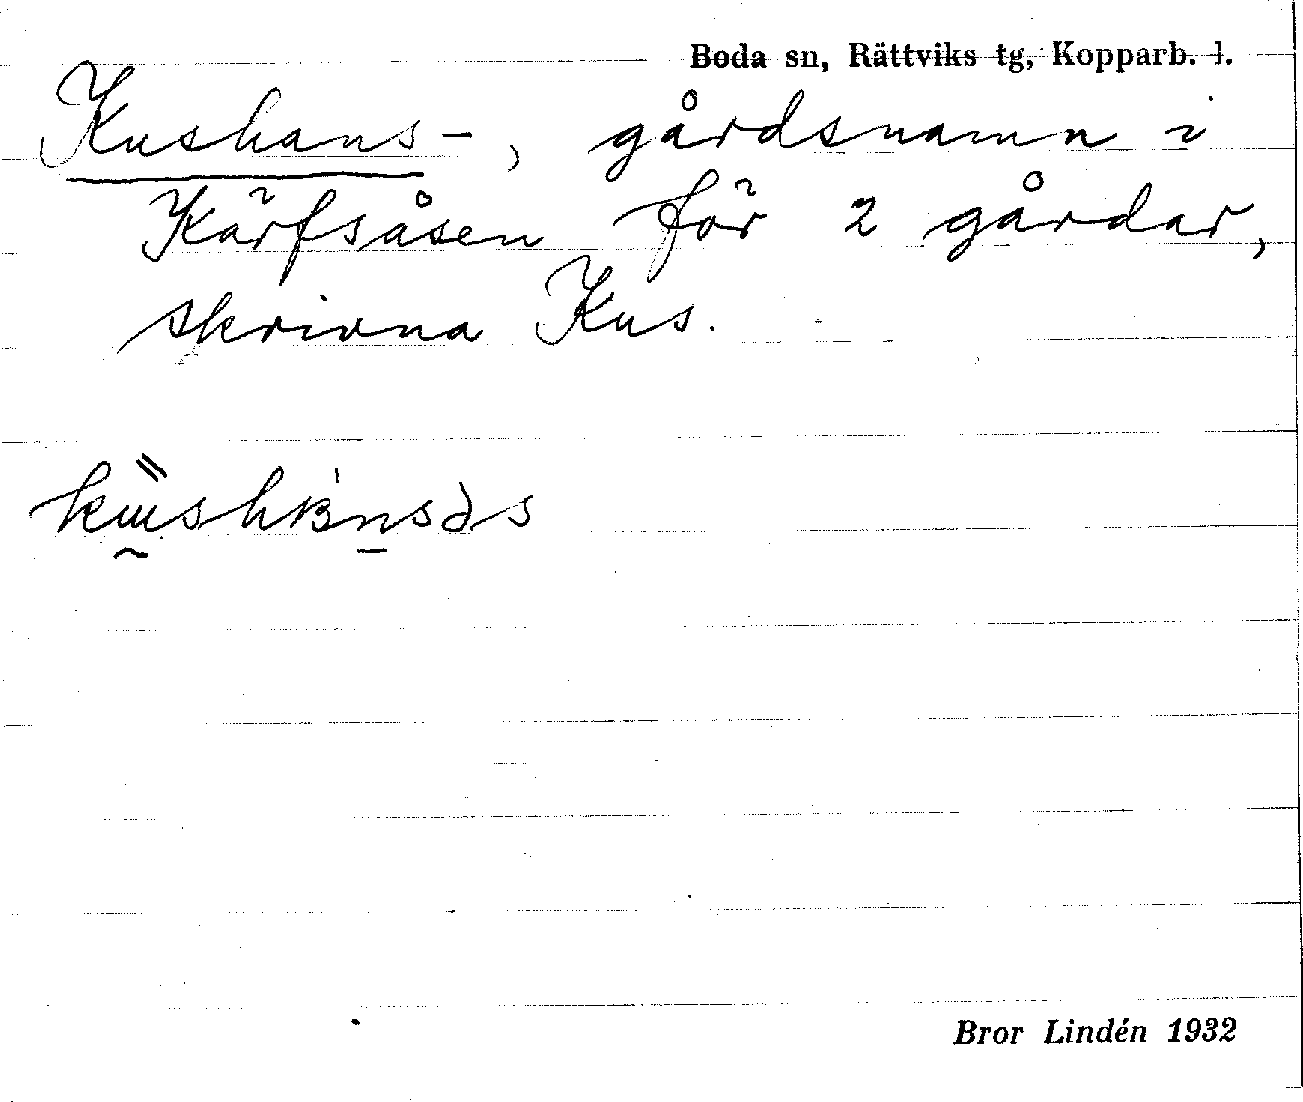 Boda sn, Rättviks tg, Kopparb. l.
Kushans-, gårdsnamn i
Kärfsåsen för 2 gårdar,
skrivna Kus.
Bror Lindén 1932